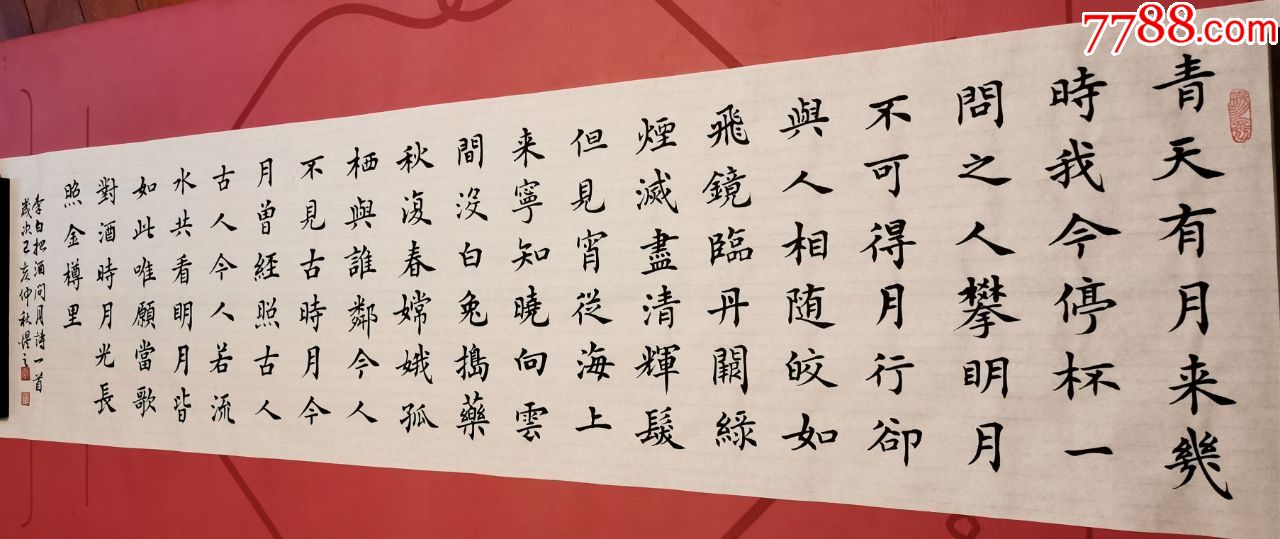 7788.com
青天有月来幾
時我今停杯一
問之人攀明月
不可得月行卻
與人相随皎如
飛鏡臨丹闕綠
煙滅盡清輝髮
但見宵從海上
来寧知曉向雲
間没白兔搗藥
秋復春嫦娥孤
栖與誰鄰今人
不見古時月今
月曾經照古人
古人今人若流
水共看明月皆
如此唯願當歌
對酒時月光長
照金樽里
李白把酒问月詩一首
歲次己亥仲秋